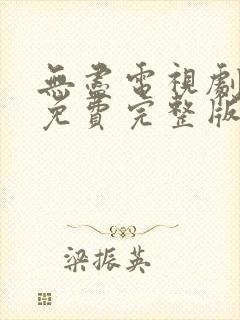 無盡電視劇
免費完整版
梁振英